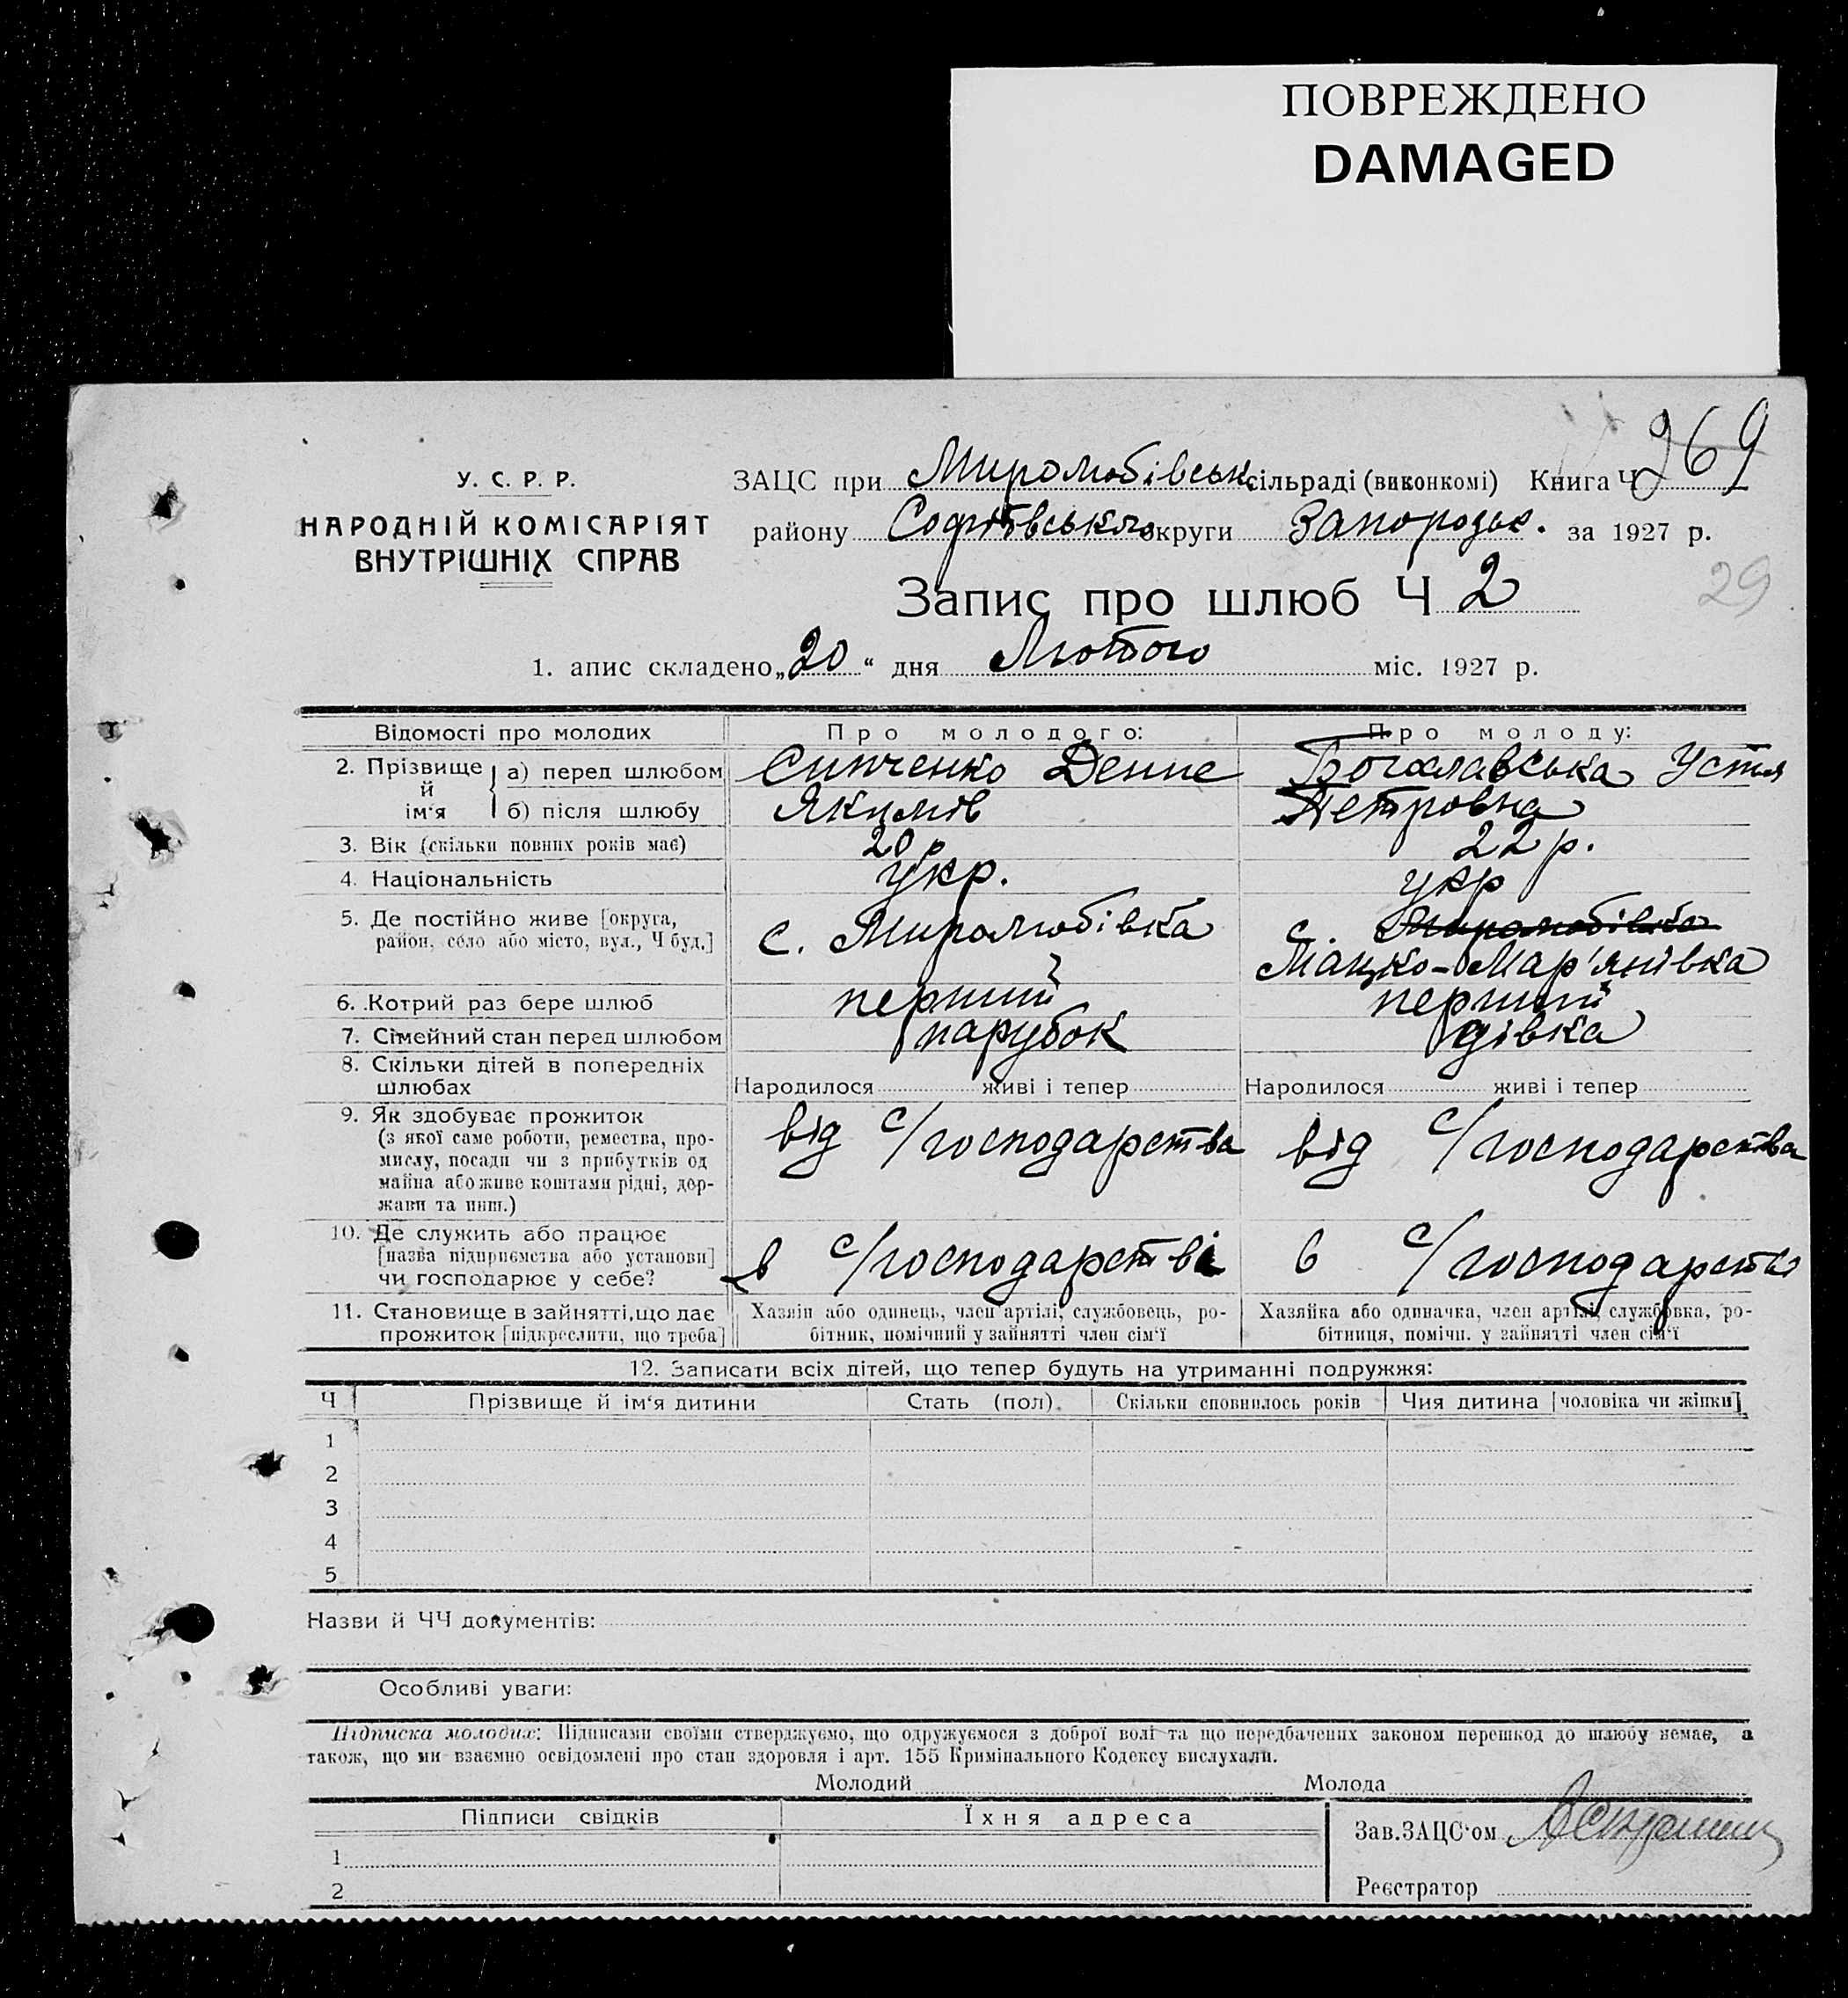 ПОВРЕЖДЕНО
DAMAGED
У. С. Р. Р.
НАРОДНІЙ КОМІСАРІЯТ
ВНУТРІШНІХ СПРАВ
ЗАЦС при Миролюбівськ. сільраді (виконкомі) Книга Ч 269
району Софіївсько округи Запорозьк. за 1927 р.
Запис про шлюб Ч 2
29
1. апис складено „20“ дня Лютого міс. 1927 р.
Відомості про молодих
Про молодого:
Про молоду:
2. Прізвище й ім‘я
а) перед шлюбом
б) після шлюбу
Денис
Якимів
Богославська Устя
Петровна
3. Вік (скільки повних років має)
20 р
22 р.
4. Національність
укр.
укр
5. Де постійно живе [округа,
район, село або місто, вул., Ч буд.]
с. Миролюбівка
с. Миролюбівка
Мацко-Мар'янівка
6. Котрий раз бере шлюб
перший
перший
7. Сімейний стан перед шлюбом
парубок
дівка
8. Скільки дітей в попередніх
шлюбах
Народилося живі і тепер
Народилося живі і тепер
9. Як здобуває прожиток
(з якої саме роботи, ремества, про-
мислу, посади чи з прибутків од
майна або живе коштами рідні, дер-
жави та инш.)
від с/господарства
від с/господарства
10. Де служить або працює
[назва підприємства або установи]
чи господарює у себе?
в с/господарстві
в с/господарстві
11. Становище в зайнятті, що дає
прожиток [підкреслити, що треба]
Хазяїн або одинець, член артілі, службовець, ро-
бітник, помічний у зайнятті член сім‘ї
Хазяйка або одиначка, член артілі, службовка, ро-
бітниця, помічн. у зайнятті член сім‘ї
12. Записати всіх дітей, що тепер будуть на утриманні подружжя:
Ч
Прізвище й ім‘я дитини
Стать (пол).
Скільки сповнилось років
Чия дитина [чоловіка чи жінки]
1
2
3
4
5
Назви й ЧЧ документів:
Особливі уваги:
Підписка молодих: Підписами своїми стверджуємо, що одружуємося з доброї волі та що передбачених законом перешкод до шлюбу немає, а
також, що ми взаємно освідомлені про стан здоровля і арт. 155 Кримінального Кодексу вислухали.
Молодий
Молода
Підписи свідків
Їхня адреса
1
2
Зав. ЗАЦС‘ом
Реєстратор